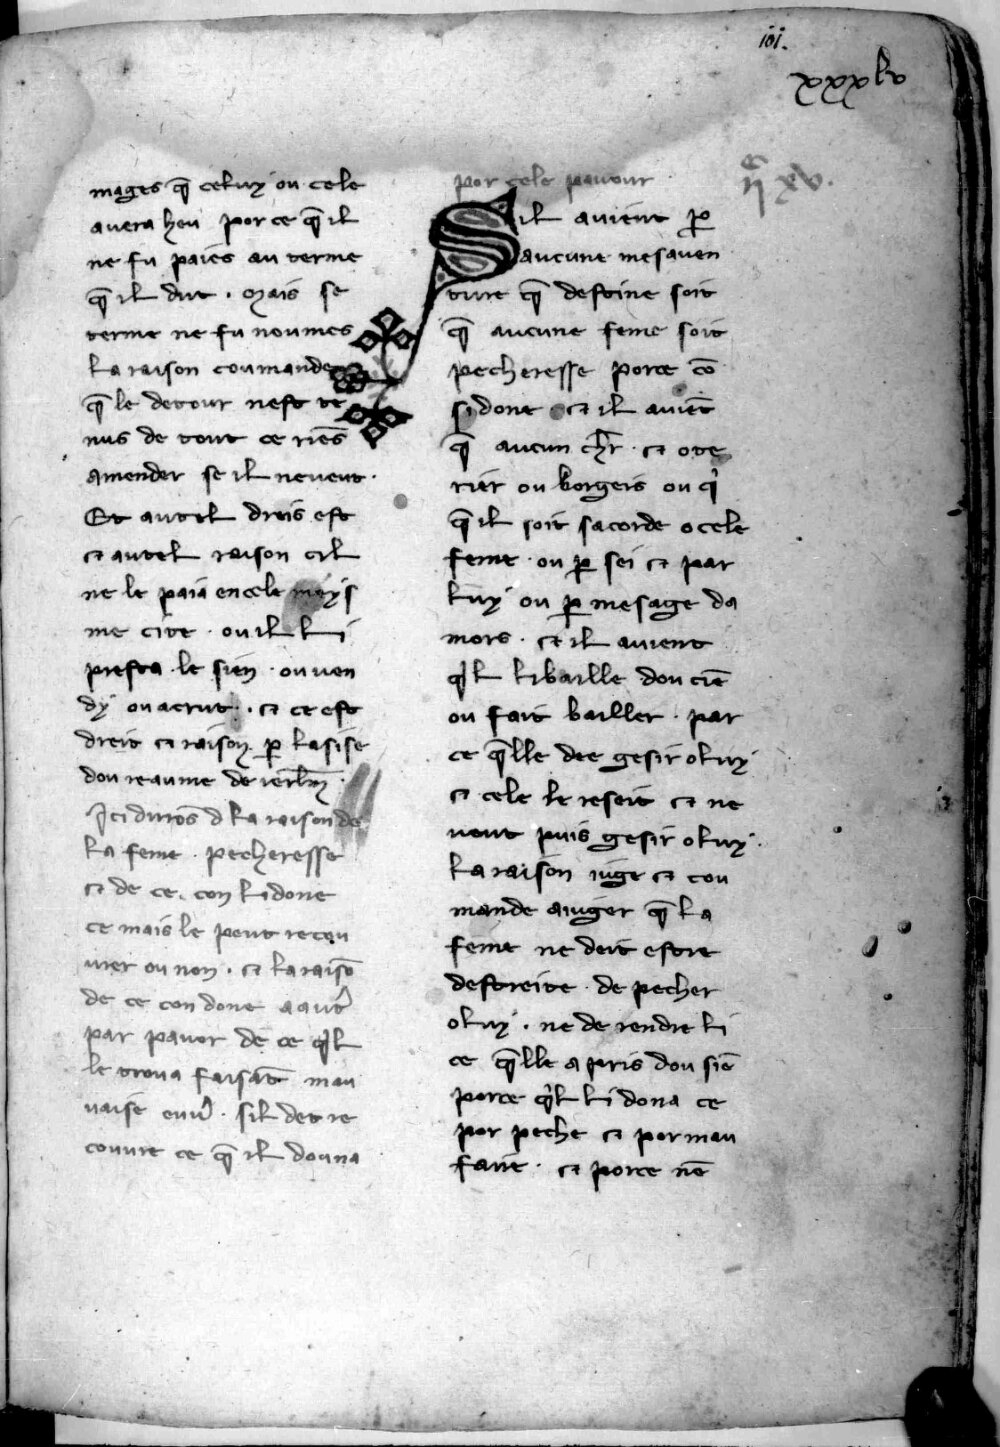 iii.
xxxlv
mages q̄ celuy ou cele
auera heu por ce q̄ il
ne fu paies au terme
q̄ il dut . Mais se
terme ne fu noumes
la raison coumande
q̄ le detour nest te
nus de tout ce riēs
amender se il ne ueut .
Et autel dreis est
et autel raison cil
ne le paia en cele meys
me cite . ou il li
presta le sien . ou uen
dy ou acrut . et ce est
dreit et raison p̲ lasise
dou reaume de ierlm̄ .
Ici dirōs d la raison de
la feme . pecheresse
et de ce . con li done
ce mais le peut recou
urer ou non . et la raisō
de ce con done a autr̾
par pauor de ce q̾l
le troua faisāt mau
uaise euur̾ . sil det re
couure ce q̄ il douna
por cele paueur
e
ij xv.
Sil auient p̲
aucune mesauen
ture q̄ destine soit
q̄ aucune feme soit
pecheresse porce cō
si dont et il auiēt
q̄ aucun chr̄ . et
rier ou borgeis ou q̾
q̄ il soit sacorde o cele
feme . ou p̲ sei et par
luy ou p̲ mesage da
mors . et il auient
q̾l li baille dou ciē
ou fait bailler . par
ce q̄lle dee gesir o luy
et cele le reseit et ne
ueut puis gesir o luy .
la raison iuge et cou
mande a iuger q̄ la
feme ne deit estre
destreite . de pecher
o luy . ne de rendre li
ce q̄lle a pris dou siē
porce q̾l li dona ce
por peche et por mau
faire . et porce nē